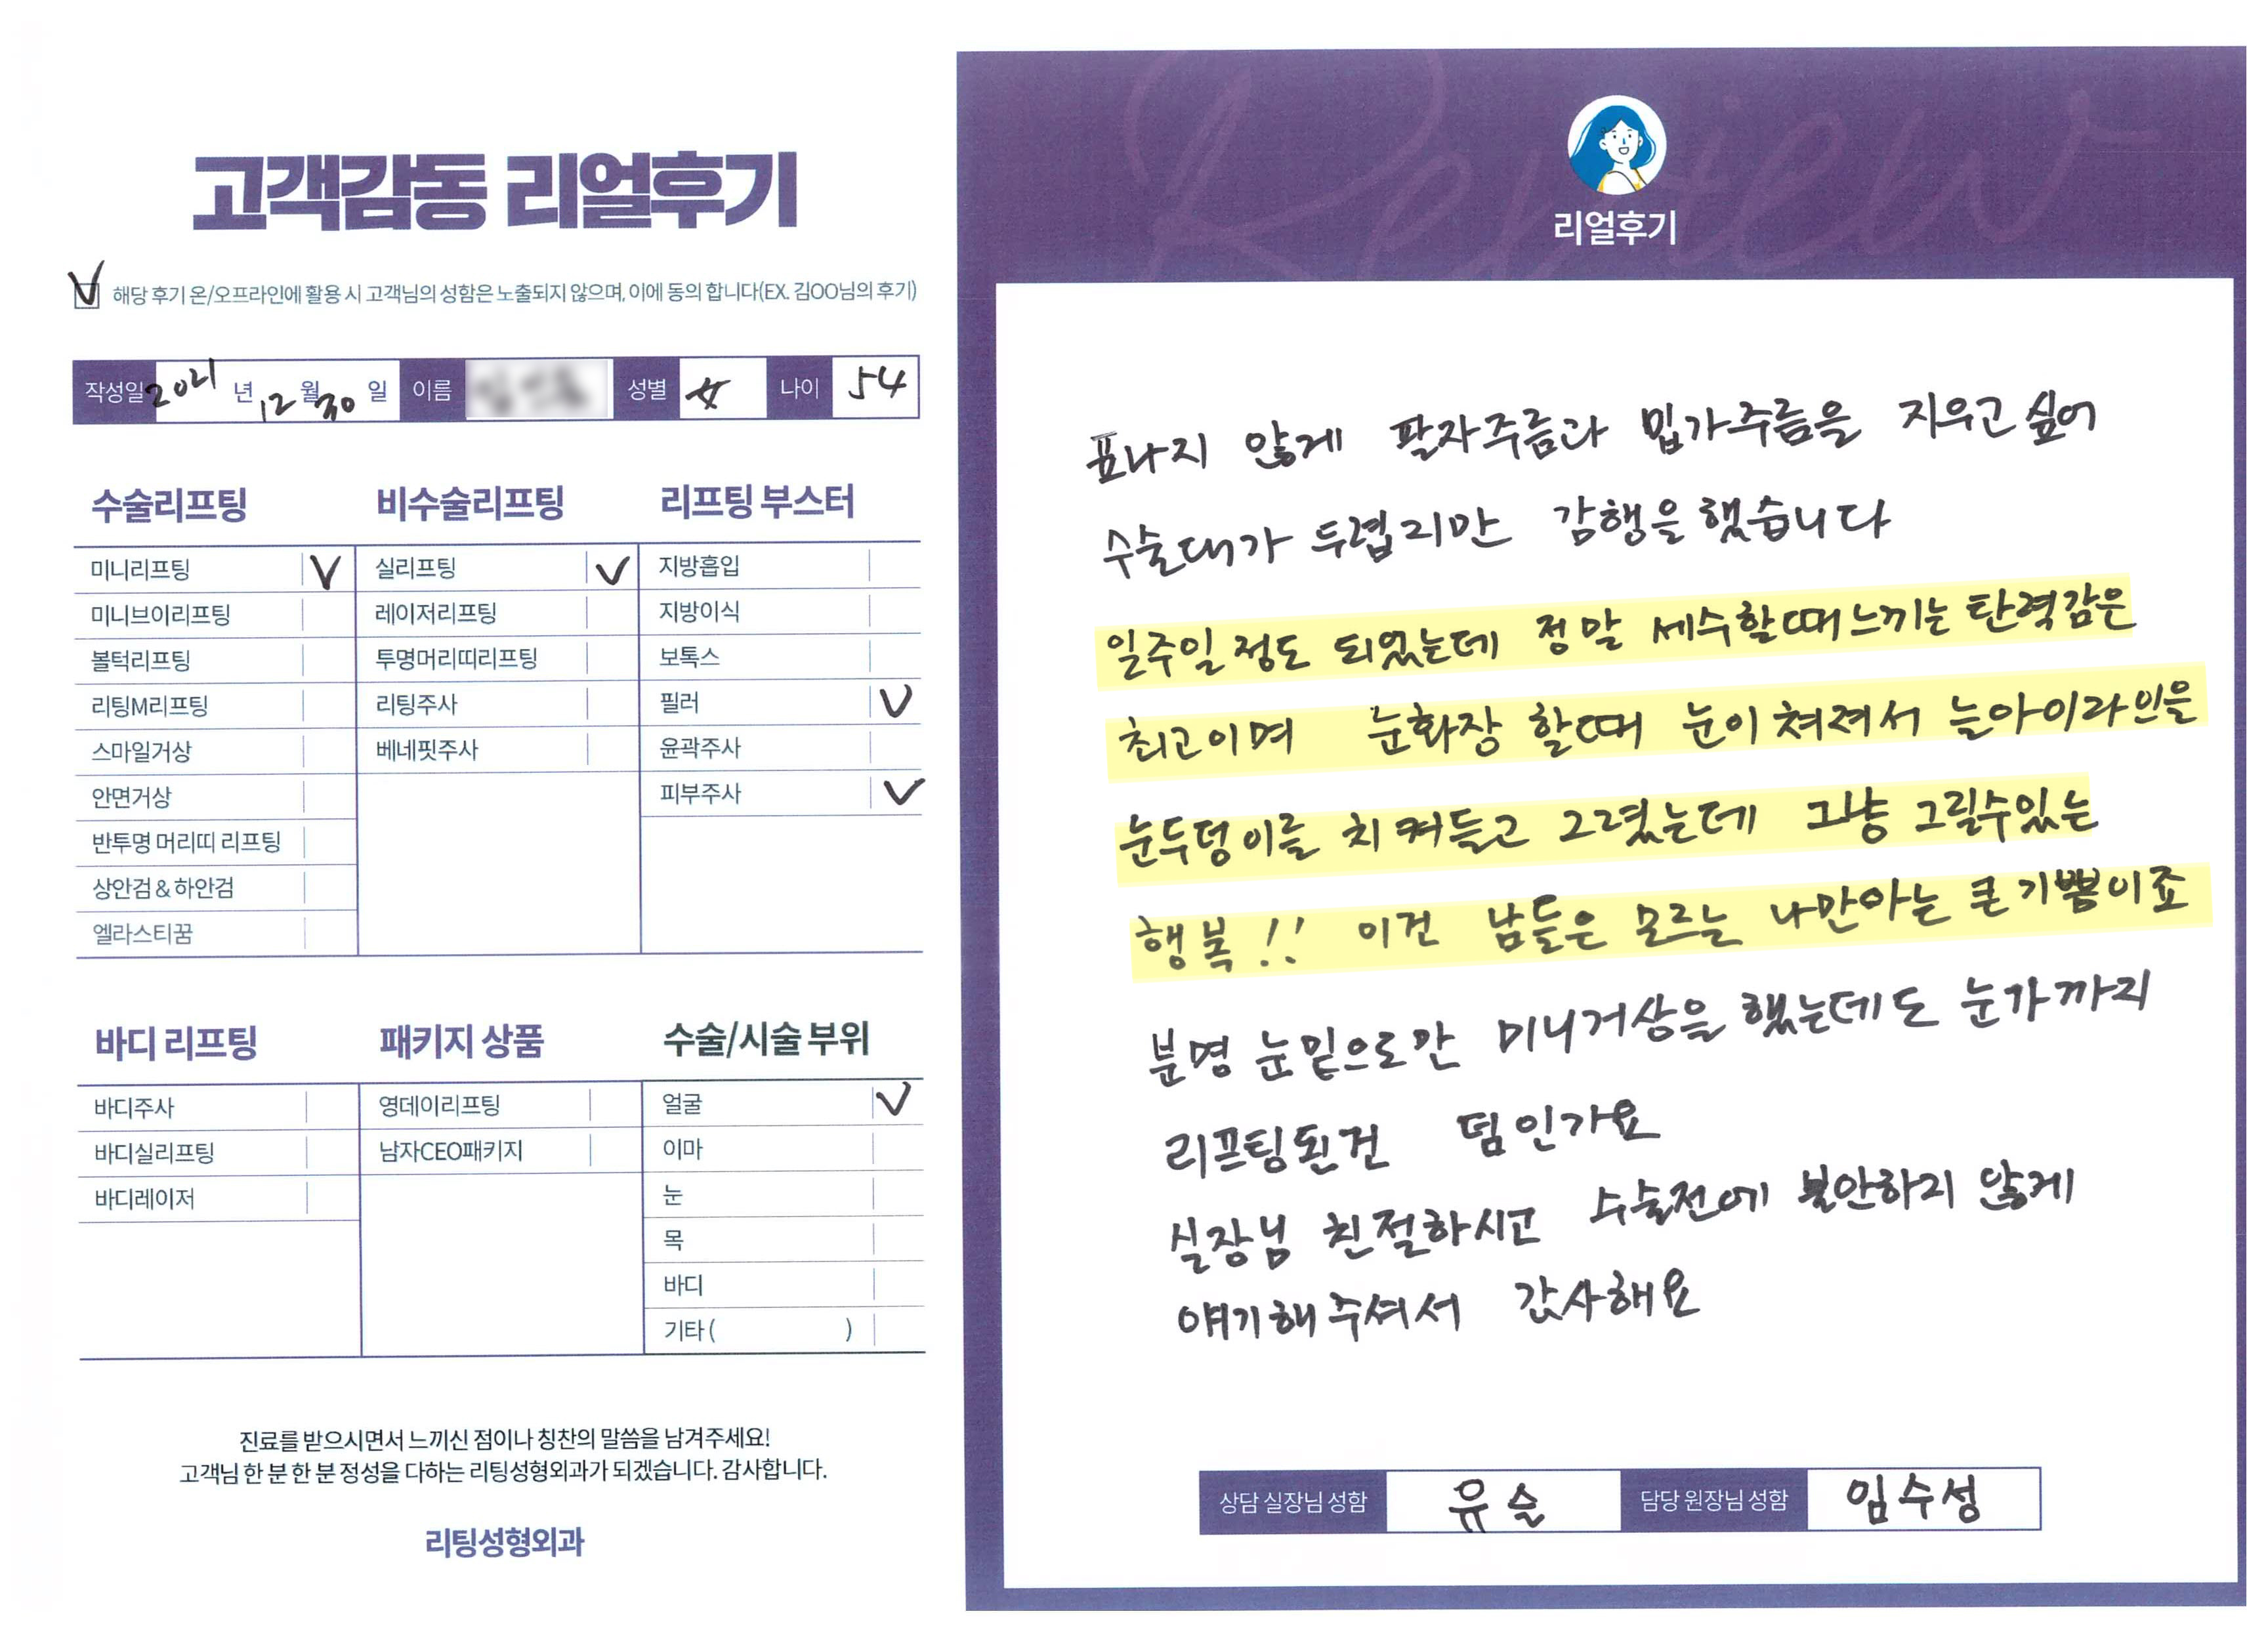 고객감동 리얼후기
V 해당 후기 온/오프라인에 활용 시 고객님의 성함은 노출되지 않으며, 이에 동의 합니다(EX. 김OO님의 후기)
작성일 2021 년 12 월 30 일 이름 성별 女 나이 54
수술리프팅 비수술리프팅 리프팅 부스터
미니리프팅 V 실리프팅 V 지방흡입
미니브이리프팅 레이저리프팅 지방이식
볼턱리프팅 투명머리띠리프팅 보톡스
리팅M리프팅 리팅주사 필러 V
스마일거상 베네핏주사 윤곽주사
안면거상 피부주사 V
반투명 머리띠 리프팅
상안검 & 하안검
엘라스티꿈
바디 리프팅 패키지 상품 수술/시술 부위
바디주사 영데이리프팅 얼굴 V
바디실리프팅 남자CEO패키지 이마
바디레이저 눈
목
바디
기타 ( )
진료를 받으시면서 느끼신 점이나 칭찬의 말씀을 남겨주세요!
고객님 한 분 한 분 정성을 다하는 리팅성형외과가 되겠습니다. 감사합니다.
리팅성형외과
Review
리얼후기
표나지 않게 팔자주름과 입가주름을 지우고 싶어
수술대가 두렵지만 감행을 했습니다
일주일 정도 되었는데 정말 세수할때 느끼는 탄력감은
최고이며 눈화장 할때 눈이 쳐져서 늘 아이라인을
눈두덩이를 치켜들고 그렸는데 그냥 그릴수있는
행복!! 이건 남들은 모르는 나만아는 큰 기쁨이죠
분명 눈밑으로만 미니거상을 했는데도 눈가까지
리프팅된건 덤인가요
실장님 친절하시고 수술전에 불안하지 않게
얘기해주셔서 감사해요
상담 실장님 성함 유슬 담당 원장님 성함 임수성